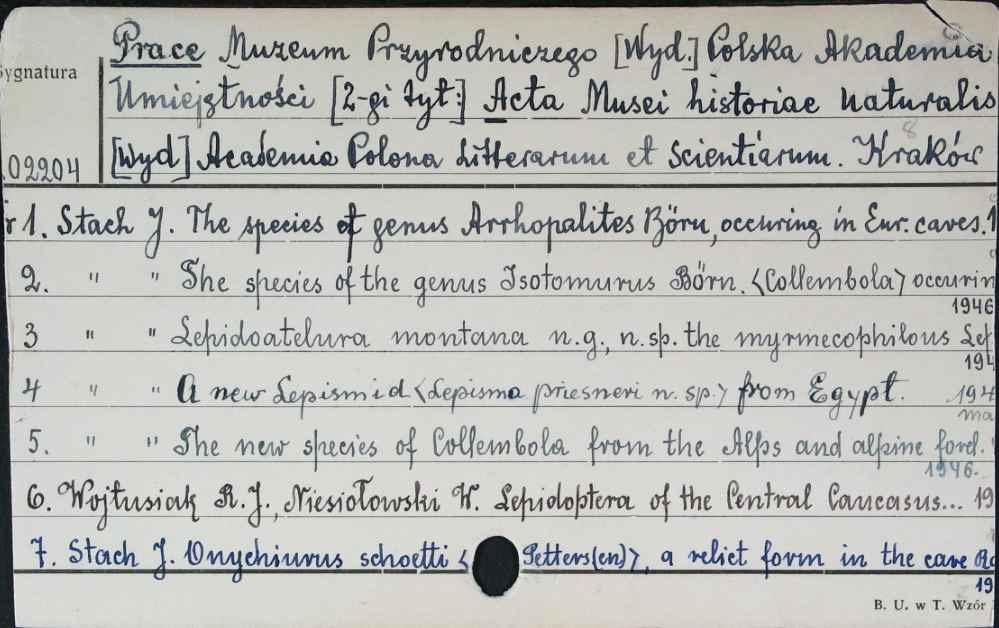 Prace Muzeum Przyrodniczego [Wyd.] Polska Akademia
ygnatura
Umiejętności [2-gi tyt:] Acta Musei historiae naturalis
8
02204 [Wyd] Academia Polona Litterarum et Scientiarum. Kraków
r 1. Stach J. The species of genus Arrhopalites Börn, occuring in Eur. caves. 1
2. " " The species of the genus Isotomurus Börn. <Collembola> occurin
1946
3 " " Lepidoatelura montana n.g., n.sp. the myrmecophilous Lep
194
4 " " A new Lepismid <Lepisma priesneri n. sp.> from Egypt. 194
5. " " The new species of Collembola from the Alps and alpine forel.
1946.
6. Wojtusiak R.J., Niesiołowski W. Lepidoptera of the Central Caucasus... 19
7. Stach J. Onychiurus schoetti < Petters(en)>, a relict form in the cave
19
B. U. w T. Wzór